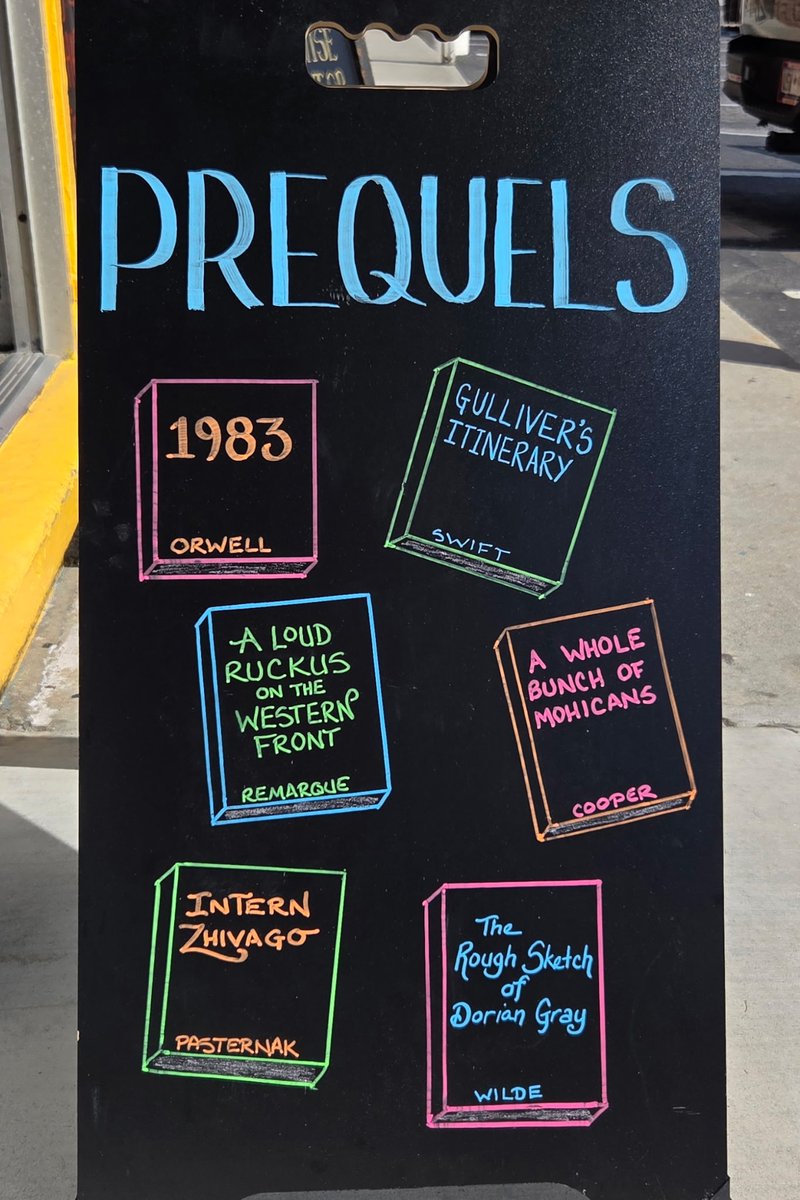 PREQUELS
1983
ORWELL
GULLIVER'S
ITINERARY
SWIFT
A LOUD
RUCKUS
ON THE
WESTERN
FRONT
REMARQUE
A WHOLE
BUNCH OF
MOHICANS
COOPER
INTERN
ZHIVAGO
PASTERNAK
The
Rough Sketch
of
Dorian Gray
WILDE